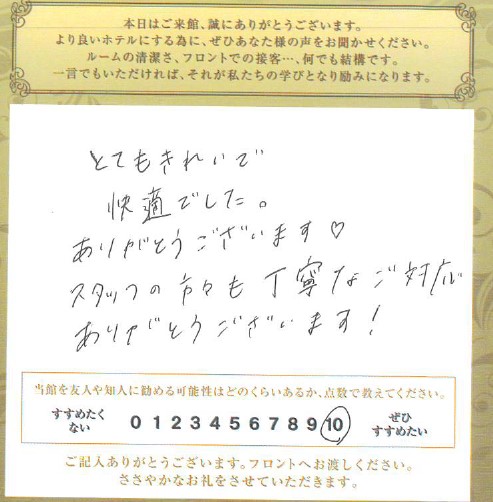 本日はご来館、誠にありがとうございます。
より良いホテルにする為に、ぜひあなた様の声をお聞かせください。
ルームの清潔さ、フロントでの接客…、何でも結構です。
一言でもいただければ、それが私たちの学びとなり励みになります。
とてもきれいで
快適でした。
ありがとうございます♡
スタッフの方々も丁寧なご対応
ありがとうございます!
当館を友人や知人に勧める可能性はどのくらいあるか、点数で教えてください。
すすめたくない 0 1 2 3 4 5 6 7 8 9 10 ぜひすすめたい
ご記入ありがとうございます。フロントへお渡しください。
ささやかなお礼をさせていただきます。